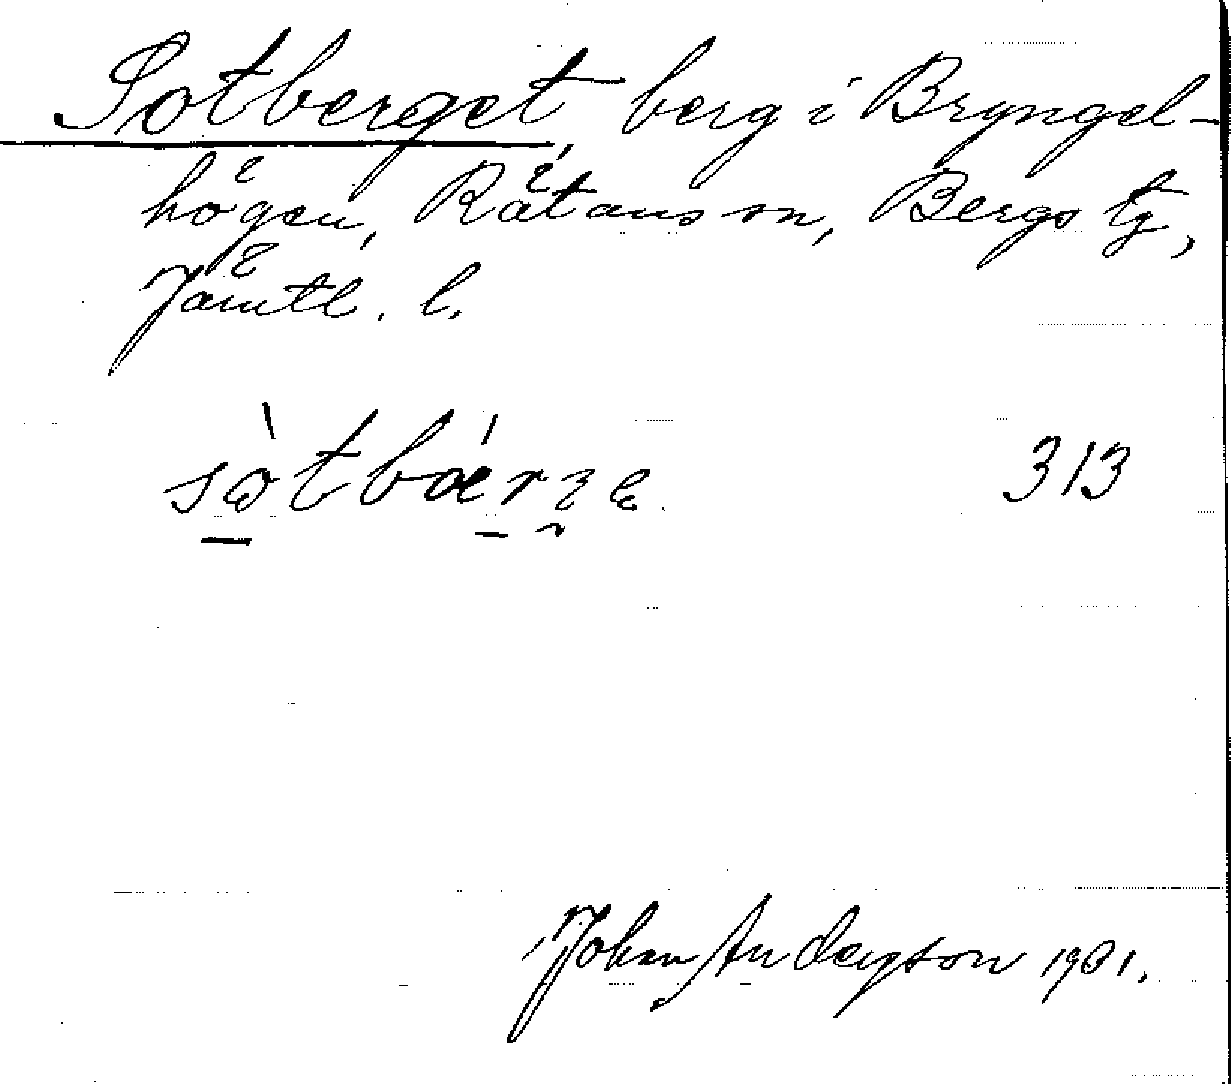 Sotberget, berg i Bryngel-
högen, Rätans sn, Bergs tg,
Jämtl. l.
sòtbǽrʒe 313
Johan Anderson 1901.